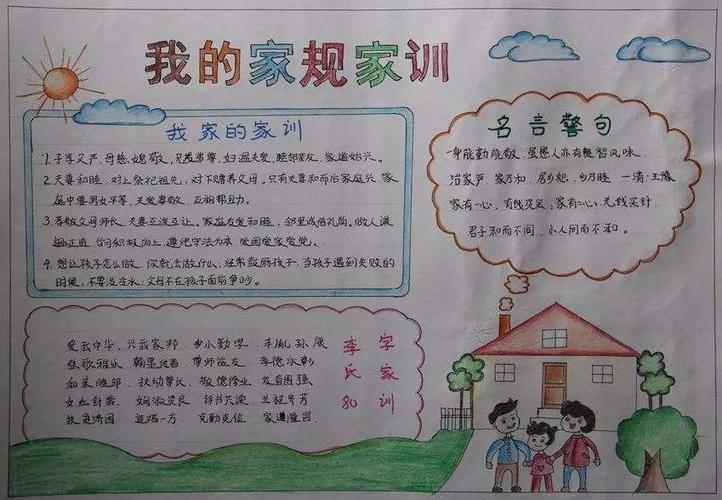 我的家规家训
我家的家训
1. 子孝父严,母慈,媳敬,兄爱弟尊,妇温夫爱,睦邻亲友,家道始兴。
2. 夫妻和睦,对上祭祀祖先,对下赡养父母。只有夫妻和而后家庭兴,家
庭中要男女平等,夫爱妻敬,互相帮且力。
3. 孝敬父母师长,夫妻互谅互让。家庭友爱和睦,邻里诚信礼尚。做人谦
逊正直,学习积极向上,遵纪守法为本,爱国爱家爱党。
4. 想让孩子怎么做,你就去做什么,经常鼓励孩子,当孩子遇到失败的
时候,不要泼冷水;父母不在孩子面前争吵。
名言警句
身能勤能敬,虽愚人亦有贤智风味
治家严,家乃和;居乡恕,乡乃睦
家有一心,有钱买金;家有二心,无钱买针
君子和而不同,小人同而不和。
爱我中华,兴我家邦
敦敬雅乐 翰墨传香 尊师益友 孝德永彰
和莱睦邻 扶幼尊长 敬德修业 发奋图强
女红针黹 娴淑贤良 诗书共读
扶危济困 造福一方 克勤克俭 家道隆昌
李氏80字家训